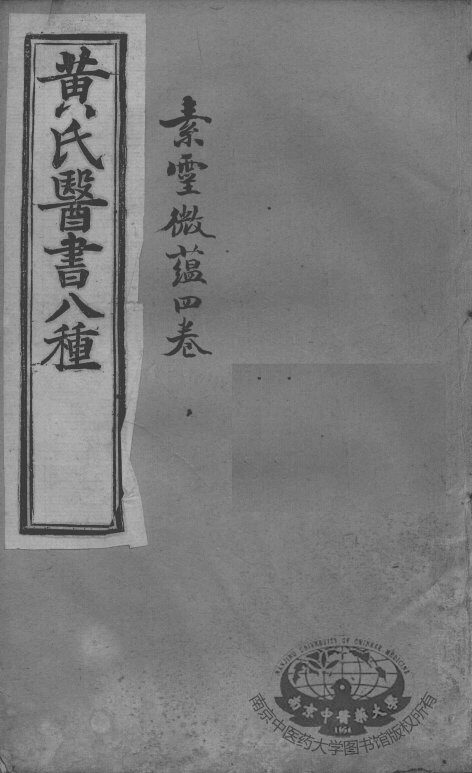 黄氏醫書八種
素靈微蘊四卷
NANJING UNIVERSITY OF CHINESE MEDICINE
南京中醫藥大學
1954
南京中医药大学图书馆版权所有